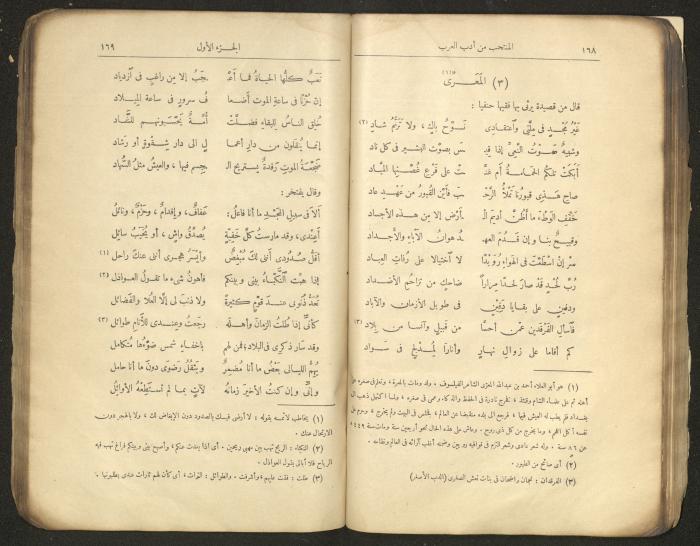 ١٦٨
المنتخب من أدب العرب
(٣) المَعَرى (١)
قال من قصيدة يرثى بها فقيها حنفيا :
غَيْرُ مُجْدٍ فى مِلَّتى واعتقادى نَوْحُ باكٍ ، ولا تَرَنُّمُ شادِ (٢)
وشبيهٌ صَوْتُ النَّعِىِّ إذا قيـ ـس بصوت البشير فى كل ناد
أَبَكَتْ تلكمُ الحمامــةُ أم غَنَّـ ـت على فَرْع غُصْنِها الميَّاد
صاحِ هَــذِى قبورُنا تَمْلأُ الرَّحْـ ـبَ فأَيْنَ القُبورُ من عَهْدِ عاد
خَفِّفِ الوَطْءَ ما أظُنُّ أديمَ الـ ـأرْض إلا مِن هذِهِ الأجساد
وقبيحٌ بنا وإن قَدُمَ العهـ ـدُ هوانُ الآباء والأجداد
سِرْ إنِ اسْطَعْتَ فى الهواء رُوَيْدًا لا اختيالا على رُفاتِ العباد
رُبَّ لحدٍ قَدْ صارَ لحدًا مرارًا ضاحكٍ من تزاحُمِ الأضداد
ودفينٍ على بقايا دَفِينٍ فى طويل الأزمانِ والآباد
فاسألِ الفرقدين عمَّن أحسَّا من قَبيلٍ وآنسا من بلاد (٣)
كم أقاما على زوالِ نهارٍ وأنارا لِمُدْلجٍ فى سَواد
(١) هو أبو العلاء أحمد بن عبدالله المعرّى الشاعر الفيلسوف . ولد ومات بالمعرة ، وتعلم فى صغره على
(٢) أى صائح من الطيور .
(٣) الفرقدان : نجمان واضحان فى بنات نعش الصغرى (الدب الأصغر)
الجزء الأول
١٦٩
تَعَبٌ كلُّها الحياةُ فما أعْـ ـجَبُ إلا مِن راغبٍ فى ازدياد
إن حُزْنًا فى ساعةِ الموت أضعا فُ سرورٍ فى ساعة الميــلاد
خُلِق الناسُ للبقاء فضَلَّتْ أُمَّةٌ يَحْسَبونهــم للنَّفاد
إنما يُنْقَلون من دار أعما لٍ الى دار شِقْوةٍ أو رَشاد
ضَجْعَةُ الموتِ رَقْدةٌ يستريح الـ ـجِسم فيها ، والعيشُ مثلُ السُّهاد
وقال يفتخر :
ألا فى سبيل المَجْـدِ ما أنا فاعلُ: عفافٌ، وإقدامٌ ، وحَزْمٌ، ونائلُ
أعندى، وقد مارستُ كلَّ خفيّةٍ يُصدَّقُ واشٍ ، أو يُخَيَّبُ سائل
أقلُّ صُدُودى أننى لك مُبْغِضٌ وأيْسَرُ هجرى أننى عنك راحل (١)
إذا هبَّت النَّكْباءُ بينى وبينكم فأهونُ شىء ما تقول العواذل (٢)
تُعَدُّ ذُنوبى عنــدَ قومٍ كثيرةً ولا ذنبَ لى إلّا العُلا والفضائل
كأنى إذا طُلتُ الزمانَ وأهــلَه رجَعتُ وعنــدى للأنام طوائل (٣)
وقد سار ذكرى فى البلاد فمن لهم بإخفاء شمس ضوءُها متكامل
يُهِمُّ الليــالى بعضُ ما أنا مُضمِرٌ ويَثْقُلُ رَضْوَى دونَ ما أنا حامل
وإنِّى وإن كنتُ الأخيرَ زمانُه لآتٍ بما لم تَستطِعْهُ الأوائل
(١) يخاطب لائمه بقوله : لا أرضى فيك بالصدود دون الإبغاض لك ، ولا بالهجر دون
الارتحال عنك .
(٢) النكباء : الريح تهب بين مهبى ريحين . أى إذا بعدت عنكم ، وأصبح بينى وبينكم فراغ تهب فيه
الرياح فلا أبالى بقول العواذل .
(٣) طلت : فقت عليهم وأشرفت . والطوائل : الترات ، أى كأن لهم ثارات عندى يطلبونها .